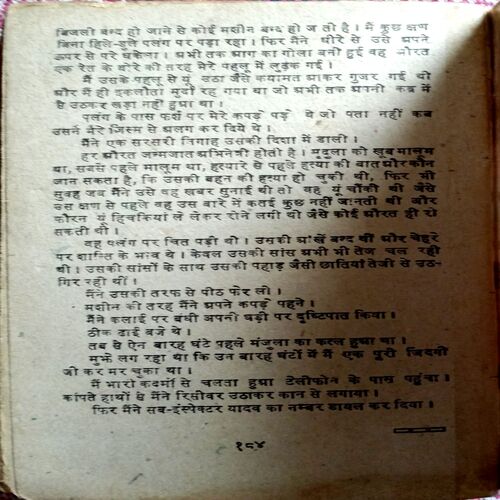 बिजली बन्द हो जाने से कोई मशीन बन्द हो ज ती है । मैं कुछ क्षण
बिना हिले-डुले पलंग पर पड़ा रहा । फिर मैंने धीरे से उसे अपने
ऊपर से परे धकेला । अभी तक आग का गोला बनी हुई वह औरत
एक रेत के बोरे की तरह मेरे पहलू में लुढ़क गई ।
मैं उसके पहलू से यूं उठा जैसे कयामत आकर गुजर गई थी
और मैं ही इकलौता मुर्दा रह गया था जो अभी तक अपनी कब्र में
से उठकर खड़ा नहीं हुआ था ।
पलंग के पास फर्श पर मेरे कपड़े पड़े थे जो पता नहीं कब
उसने मेरे जिस्म से अलग कर दिये थे ।
मैंने एक सरसरी निगाह उसकी दिशा में डाली ।
हर औरत जन्मजात अभिनेत्री होती है । मृदुला को खूब मालूम
था, सबसे पहले मालूम था, हत्यारे से पहले हत्या की बात और कौन
जान सकता है, कि उसकी बहन की हत्या हो चुकी थी, फिर भी
सुबह जब मैंने उसे वह खबर सुनाई थी तो वह यूं चौंकी थी जैसे
उस क्षण से पहले वह उस बारे में कतई कुछ नहीं जानती थी और
फौरन यूं हिचकियां ले लेकर रोने लगी थी जैसे कोई औरत ही रो
सकती थी ।
वह पलंग पर चित पड़ी थी । उसकी आंखें बन्द थीं और चेहरे
पर शान्ति के भाव थे । केवल उसकी सांस अभी भी तेज चल रही
थी । उसकी सांसों के साथ उसकी पहाड़ जैसी छातियां तेजी से उठ-
गिर रही थीं ।
मैंने उसकी तरफ से पीठ फेर ली ।
मशीन की तरह मैंने अपने कपड़े पहने ।
मैंने कलाई पर बंधी अपनी घड़ी पर दृष्टिपात किया ।
ठीक ढाई बजे थे ।
तब से ऐन बारह घंटे पहले मंजुला का कत्ल हुआ था ।
मुझे लग रहा था कि उन बारह घंटों में मैं एक पूरी जिंदगी
जी कर मर चुका था ।
मैं भारी कदमों से चलता हुआ टेलीफोन के पास पहुंचा ।
कांपते हाथों से मैंने रिसीवर उठाकर कान से लगाया ।
फिर मैंने सब-इंस्पेक्टर यादव का नम्बर डायल कर दिया ।
१८४